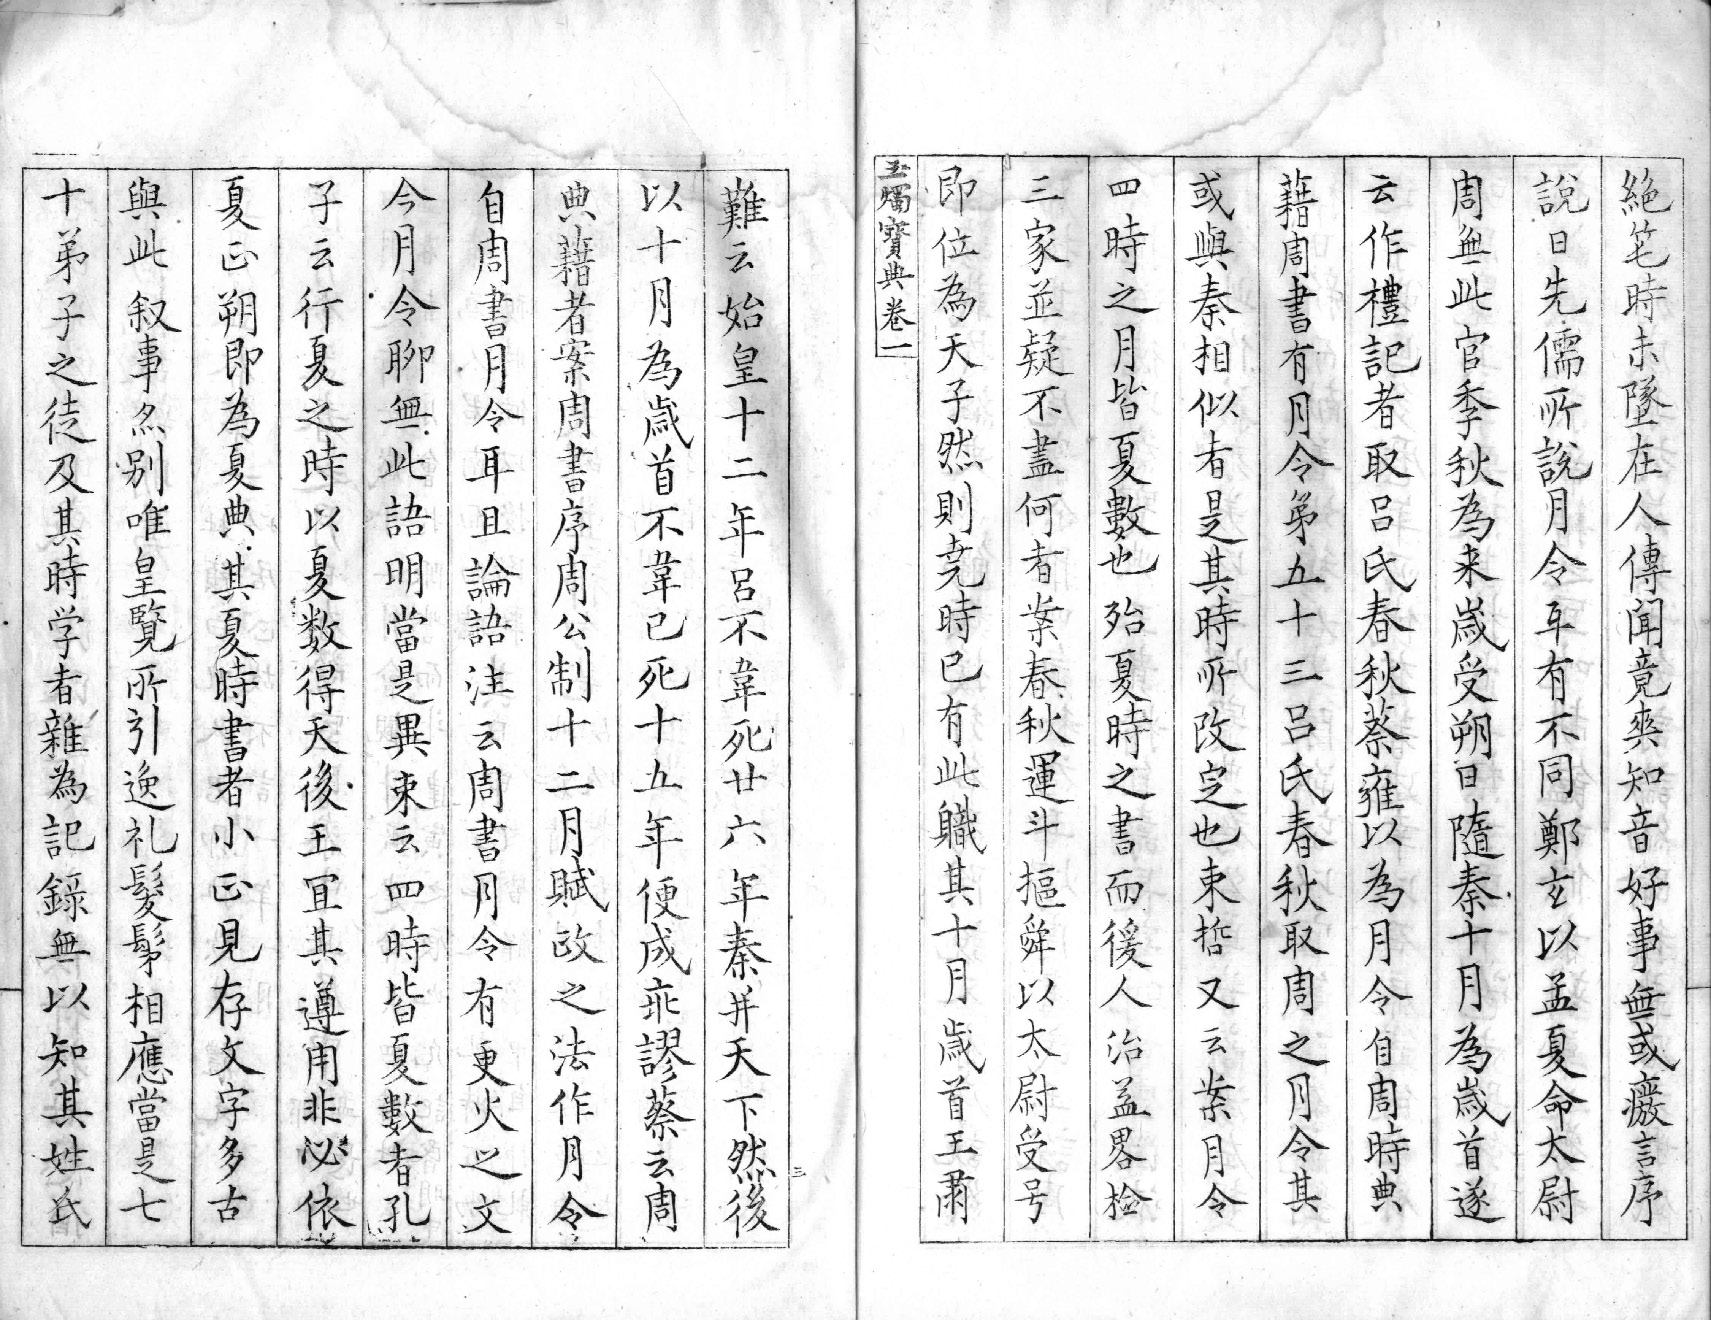 絶笔時未墜在人傳闻竟爽知音好事無或癈言序
說曰先儒所說月令互有不同鄭玄以孟夏命太尉
周無此官季秋為来歲受朔日隨秦十月為歲首遂
云作禮記者取吕氏春秋蔡雍以為月令自周時典
藉周書有月令弟五十三吕氏春秋取周之月令其
或與秦相似者是其時所改定也束晢又云案月令
四時之月皆夏數也殆夏時之書而後人治益畧檢
三家並疑不盡何者案春秋運斗摳舜以太尉受号
即位為天子然則尭時已有此職其十月歲首王肅
玉燭寳典卷一
難云始皇十二年吕不韋死廿六年秦并天下然後
以十月為歲首不韋已死十五年便成乖謬蔡云周
典藉者案周書序周公制十二月賦政之法作月令
自周書月令耳且論語注云周書月令有更火之文
今月令聊無此語明當是異束云四時皆夏數者孔
子云行夏之時以夏数得天後王冝其遵用非必依
夏正朔即為夏典其夏時書者小正見存文字多古
與此叙事尒别唯皇覽所引逸礼髣髴相應當是七
十弟子之徒及其時学者雜為記錄無以知其姓氏
三